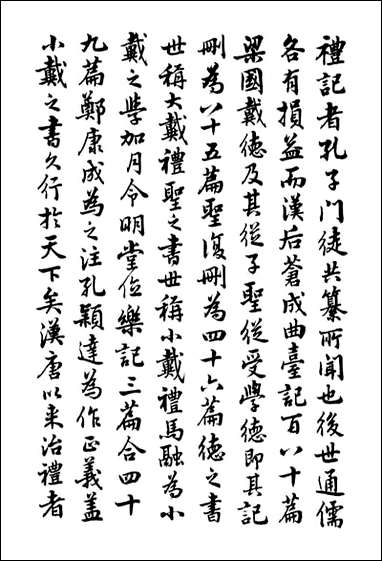 禮記者孔子門徒共纂所聞也後世通儒
各有損益而漢后蒼成曲臺記百八十篇
梁國戴德及其從子聖從受學德即其記
刪為八十五篇聖復刪為四十六篇德之書
世稱大戴禮聖之書世稱小戴禮馬融為小
戴之學加月令明堂位樂記三篇合四十
九篇鄭康成為之注孔穎達為作正義蓋
小戴之書久行於天下矣漢唐以来治禮者